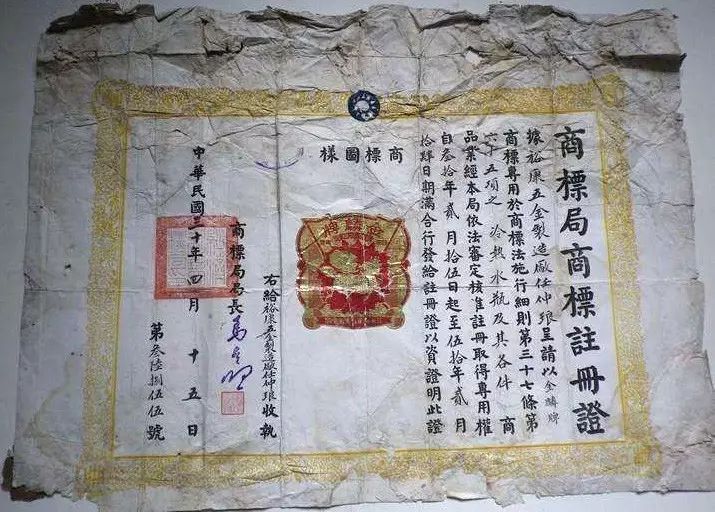 商標局商標註冊證
據裕康五金製造廠任仲琅呈請以金麟牌
商標專用於商標法施行細則第三十七條第
六十五項之冷熱水瓶及其各件商
品業經本局依法審定核准註冊取得專用權
自叁拾年貳月拾伍日起至伍拾年貳月
拾肆日期滿合行發給註冊證以資證明此證
商標圖樣
右給裕康五金製造廠任仲琅收執
商標局局長
中華民國三十年四月十五日
第叁陸捌伍伍號